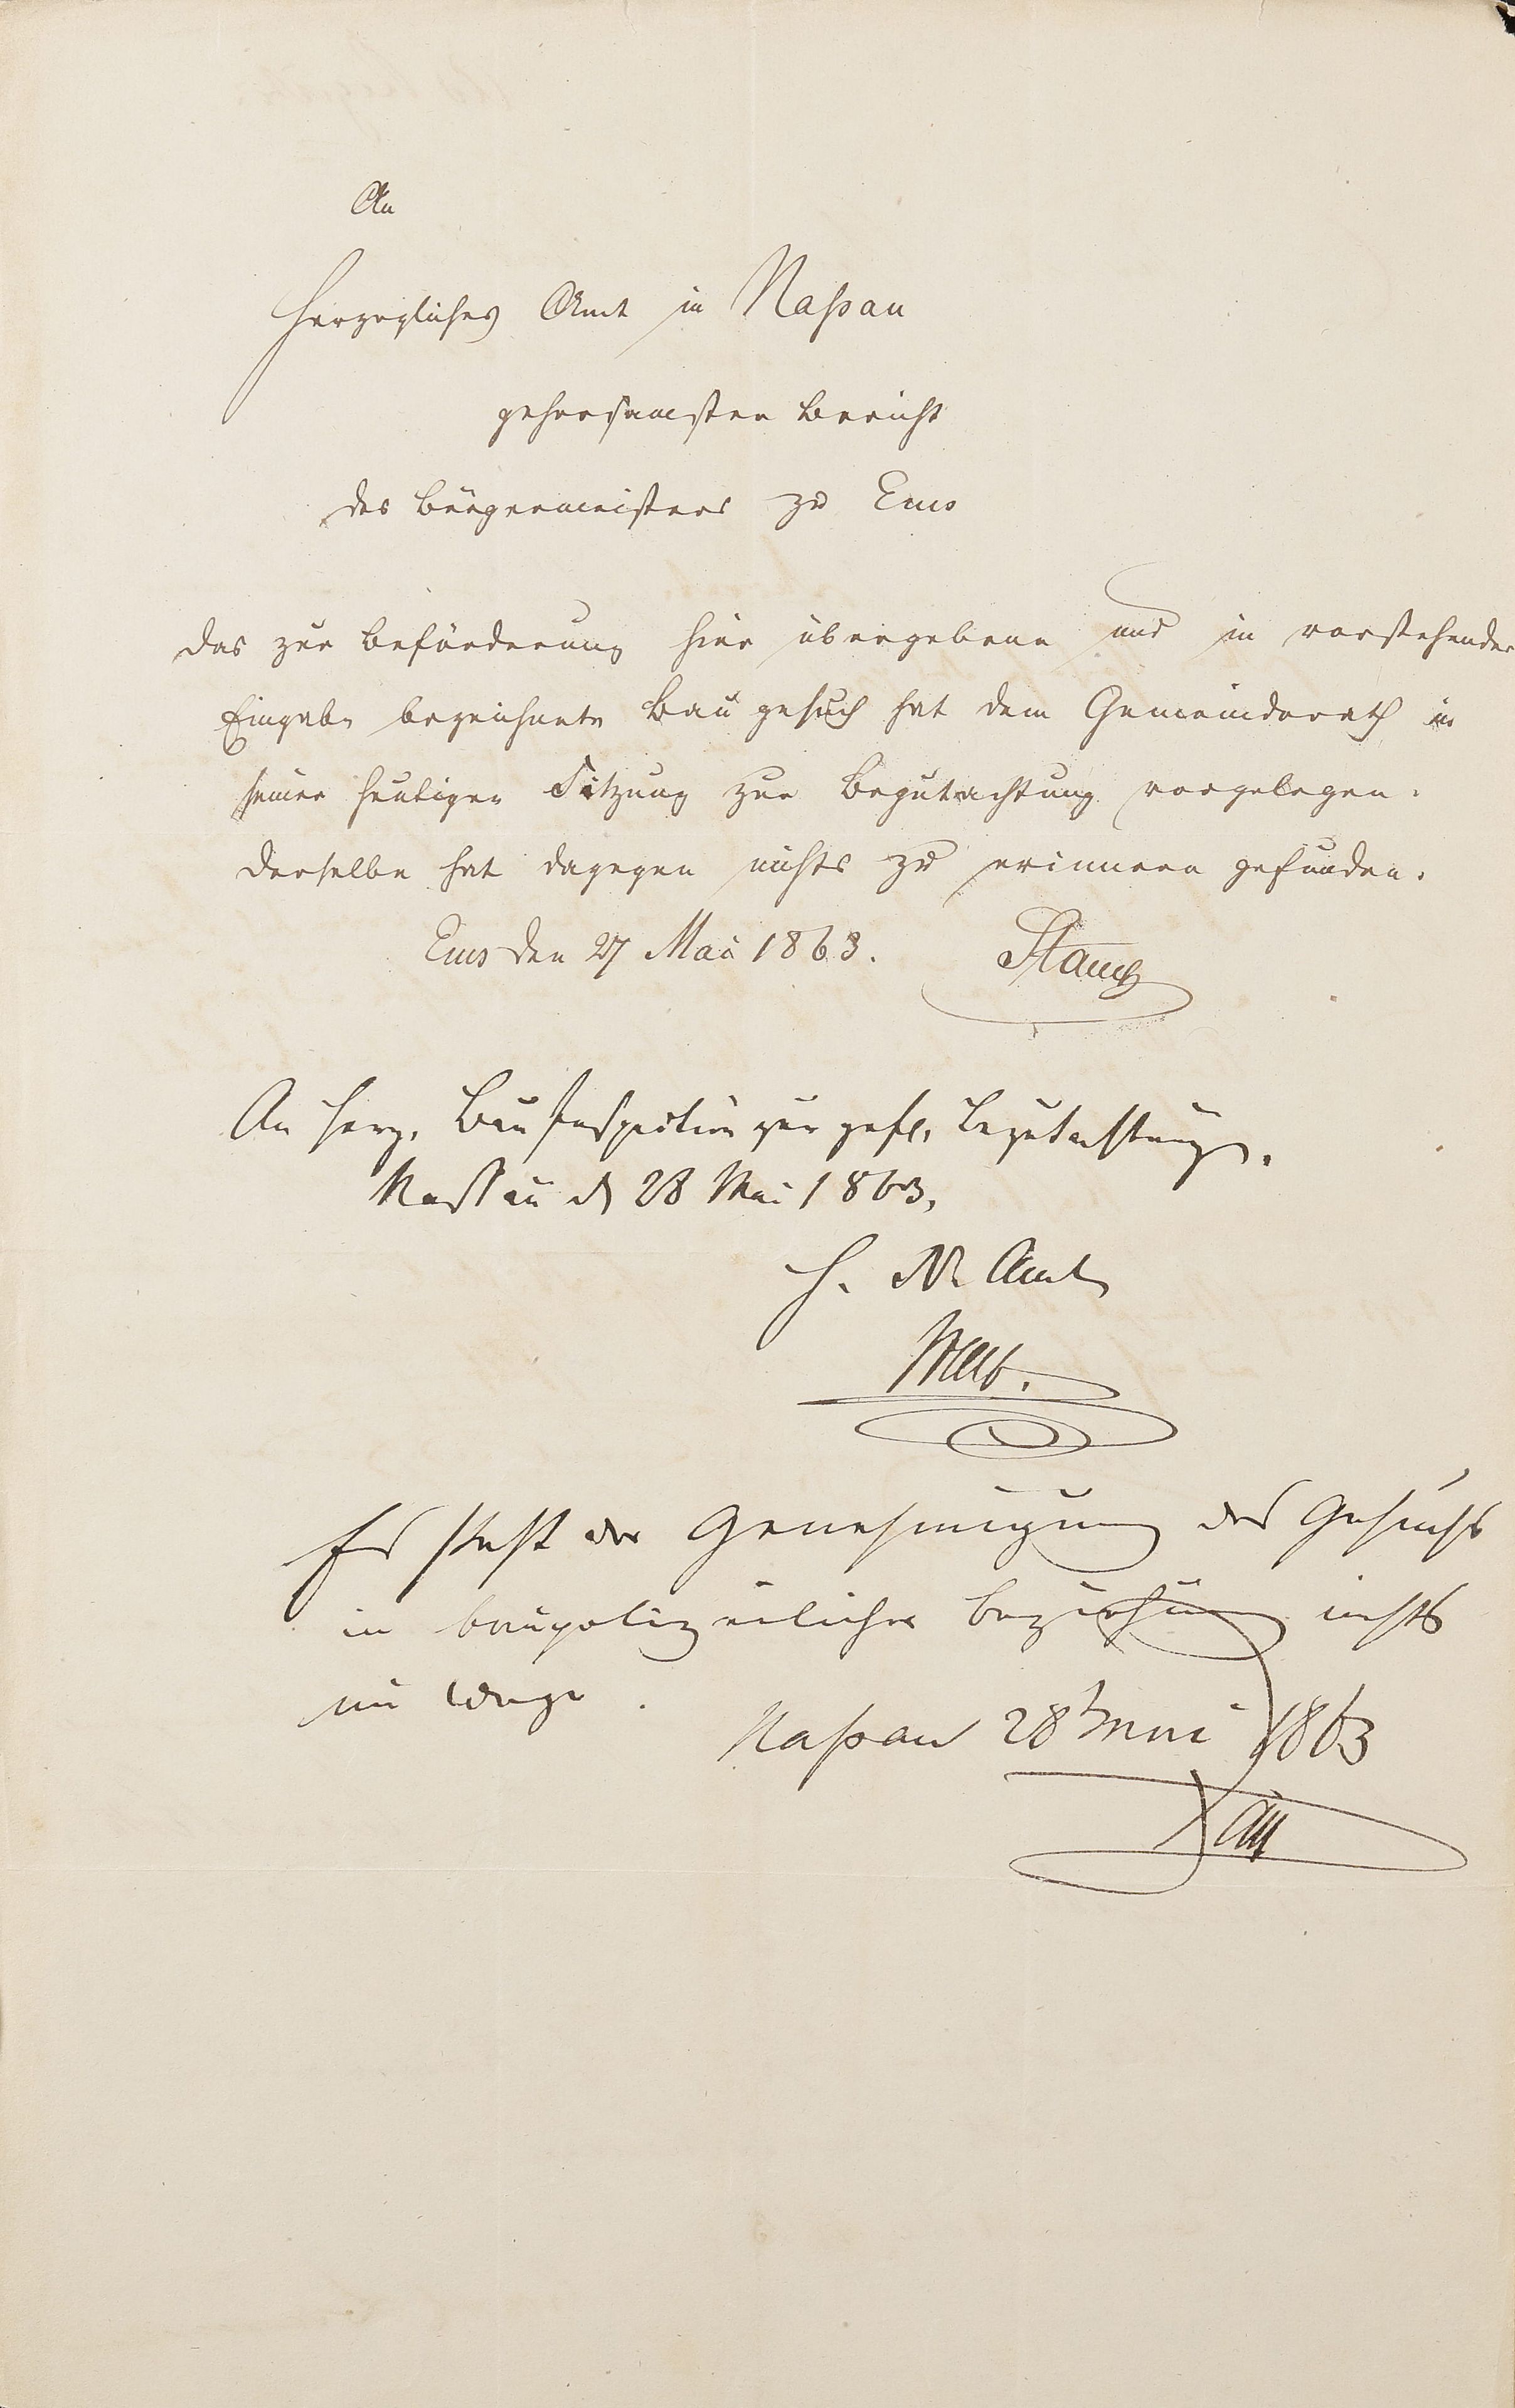 An
Herzogliches Amt in Naßau
gehorsamster Bericht
des Bürgermeisters zu Ems
Das zur Beförderung hier übergebene und in vorstehender
Eingabe bezeichnete Baugesuch hat dem Gemeinderath in
seiner heutigen Sitzung zur Begutachtung vorgelegen.
Derselbe hat dagegen nichts zu erinnern gefunden.
Ems den 27 Mai 1863.
An Herz. Bau Inspection zur gefl. Begutachtung.
Nassau d 28 Mai 1863.
H. N. Amt
Es steht der Genehmigung des Gesuchs
in baupolizeilicher Beziehung nichts
im Wege.
Naßau 28 1863